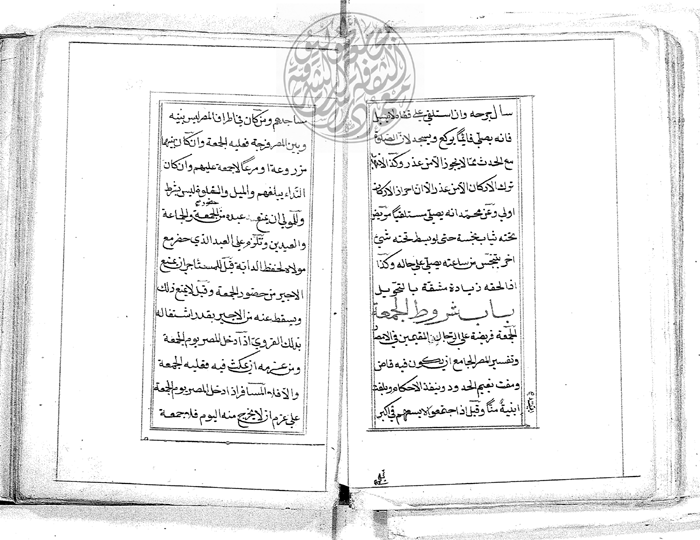 سال جرحه وان استلقى على قفاه لا يسيل
فانه يصلى قائما يركع ويسجد لان الصلوة
مع الحدث مما لا يجوز الا من عذر وكذا
ترك الاركان الا من عذر الا ان احراز الاركان
اولى وعن محمد انه يصلى مستلقيا مريض
تحته ثياب نجسة حتى لو بسط تحته شئ
اخر يتنجس من ساعته يصلى على حاله وكذا
اذا لحقه زيادة مشقة بالتحويل
باب شروط الجمعة
الجمعة فريضة على الرجال المقيمين فى الامصار
وتفسير المصر الجامع ان يكون فيه قاض
ومفت يقيم الحدود وينفذ الاحكام وبلغت
ابنية منًا وقيل اذا اجتمعوا لا يسعهم فى اكبر
مساجدهم ومن كان فى اطراف المصر ليس بينه
وبين المصر فرجة فعليه الجمعة وان كان بينهما
مزروعة او مرعًا لا جمعة عليهم وان كان
النداء يبلغهم والميل والغلوة ليس بشرط
وللمولى ان يمنع عبده من حضور الجمعة والجماعة
والعيدين وتلزم على العبد الذى حضر مع
مولاه لحفظ الدابة قيل للمستأجر ان يمنع
الاجير من حضور الجمعة وقيل لا يمنع ذلك
ويسقط عنه من الاجير بقدر اشتغاله
بذلك القروى اذا دخل المصر يوم الجمعة
ومن عزمه ان يمكث فيه فعليه الجمعة
والا فلا المسافر اذا دخل المصر يوم الجمعة
على عزم ان لا يخرج منه اليوم فلا جمعة